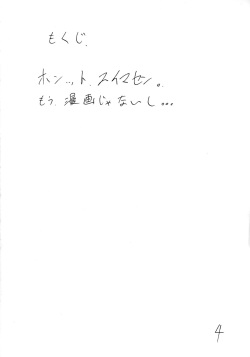 もくじ.
ホン..ト.スイマセン。
もぅ.漫画じゃないし...
4